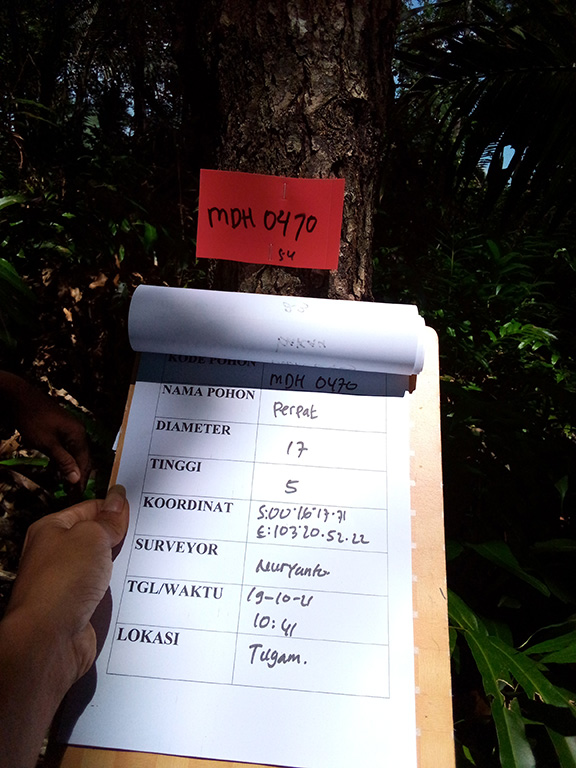 MDH 0470
84
KODE POHON MDH 0470
NAMA POHON Perpat
DIAMETER 17
TINGGI 5
KOORDINAT S:00·16·17·71
E:103·20·52·22
SURVEYOR Nuryanto
TGL/WAKTU 19-10-21
10:41
LOKASI Tugam.